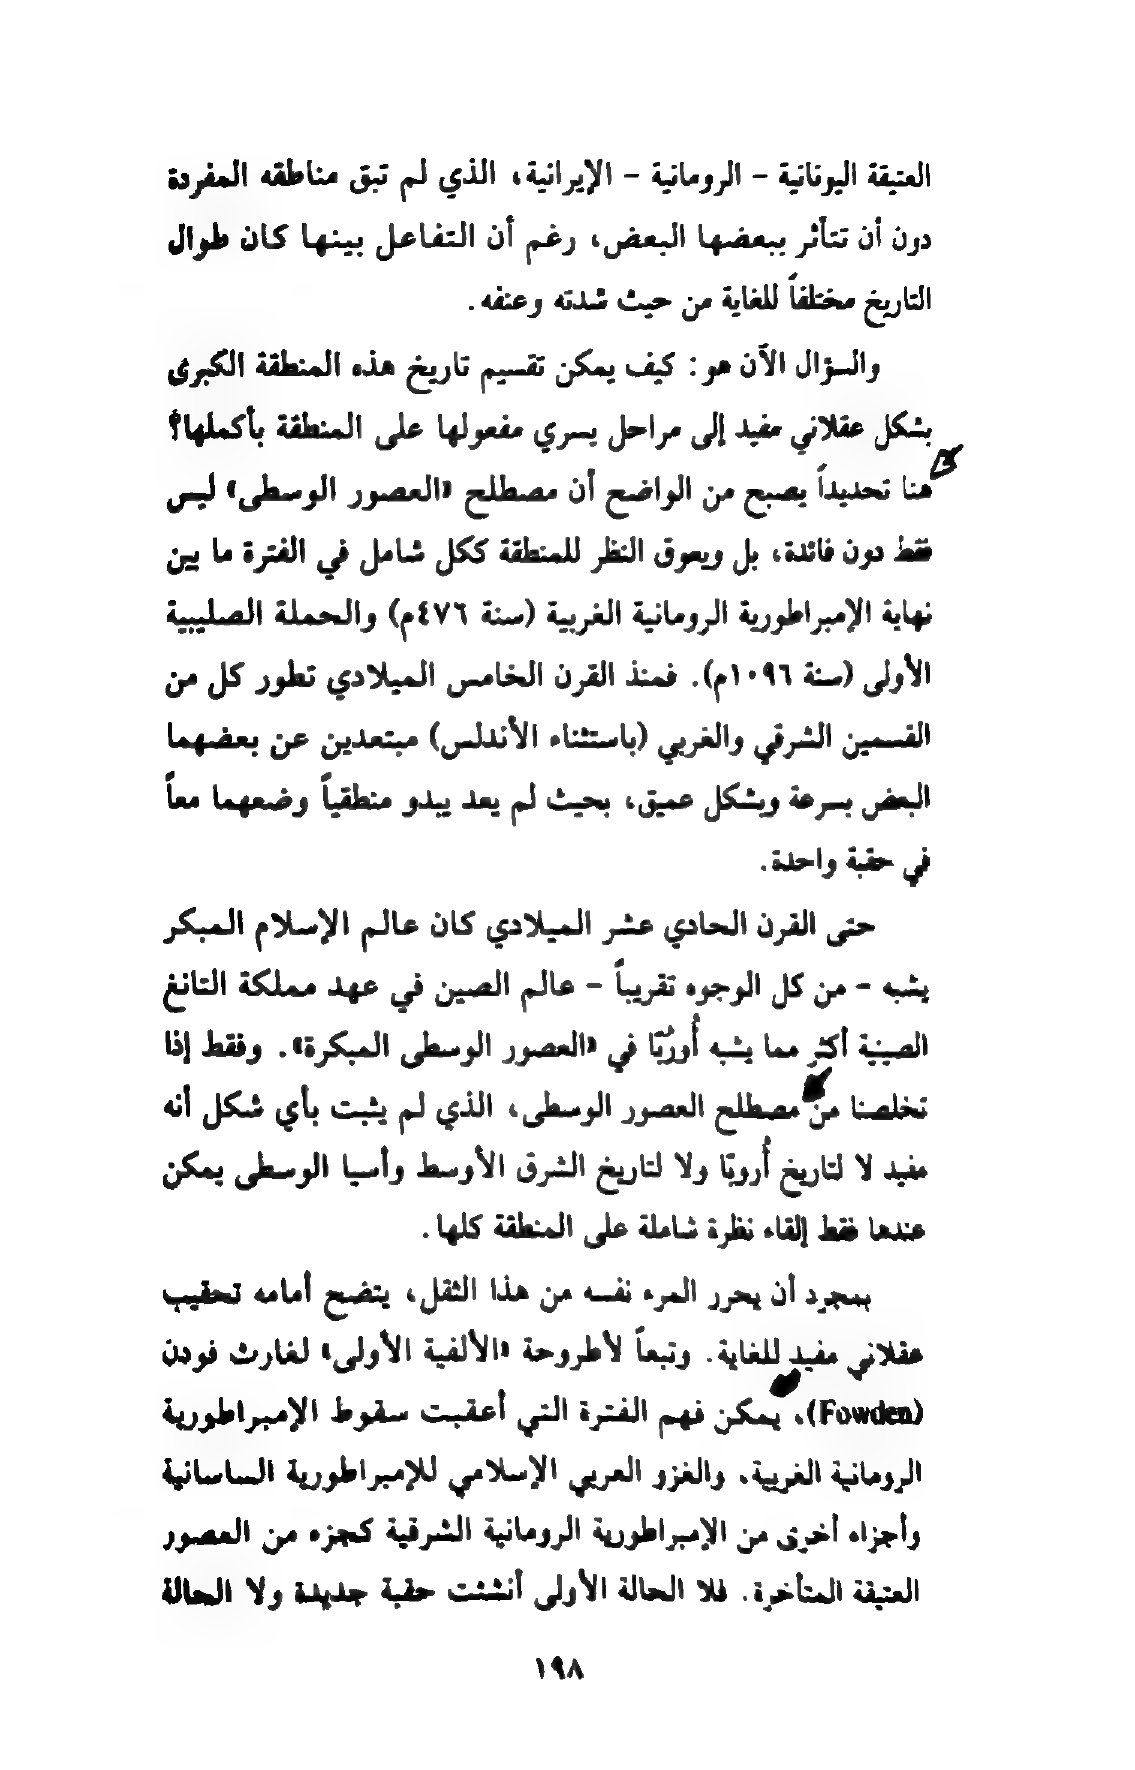 العتيقة اليونانية - الرومانية - الإيرانية، الذي لم تبق مناطقه المفردة
دون أن تتأثر ببعضها البعض، رغم أن التفاعل بينها كان طوال
التاريخ مختلفاً للغاية من حيث شدته وعنفه.
والسؤال الآن هو: كيف يمكن تقسيم تاريخ هذه المنطقة الكبرى
بشكل عقلاني مفيد إلى مراحل يسري مفعولها على المنطقة بأكملها؟
هنا تحديداً يصبح من الواضح أن مصطلح «العصور الوسطى» ليس
فقط دون فائدة، بل ويعوق النظر للمنطقة ككل شامل في الفترة ما بين
نهاية الإمبراطورية الرومانية الغربية (سنة ٤٧٦م) والحملة الصليبية
الأولى (سنة ١٠٩٦م). فمنذ القرن الخامس الميلادي تطور كل من
القسمين الشرقي والغربي (باستثناء الأندلس) مبتعدين عن بعضهما
البعض بسرعة وبشكل عميق، بحيث لم يعد يبدو منطقياً وضعهما معاً
في حقبة واحدة.
حتى القرن الحادي عشر الميلادي كان عالم الإسلام المبكر
يشبه - من كل الوجوه تقريباً - عالم الصين في عهد مملكة التانغ
الصينية أكثر مما يشبه أُورُبّا في «العصور الوسطى المبكرة». وفقط إذا
تخلصنا من مصطلح العصور الوسطى، الذي لم يثبت بأي شكل أنه
مفيد لا لتاريخ أُروبّا ولا لتاريخ الشرق الأوسط وأسيا الوسطى يمكن
عندها فقط إلقاء نظرة شاملة على المنطقة كلها.
بمجرد أن يحرر المرء نفسه من هذا الثقل، يتضح أمامه تحقيب
عقلاني مفيد للغاية. وتبعاً لأطروحة «الألفية الأولى» لغارث فودن
(Fowden)، يمكن فهم الفترة التي أعقبت سقوط الإمبراطورية
الرومانية الغربية، والغزو العربي الإسلامي للإمبراطورية الساسانية
وأجزاء أخرى من الإمبراطورية الرومانية الشرقية كجزء من العصور
العتيقة المتأخرة. فلا الحالة الأولى أنشئت حقبة جديدة ولا الحالة
١٩٨